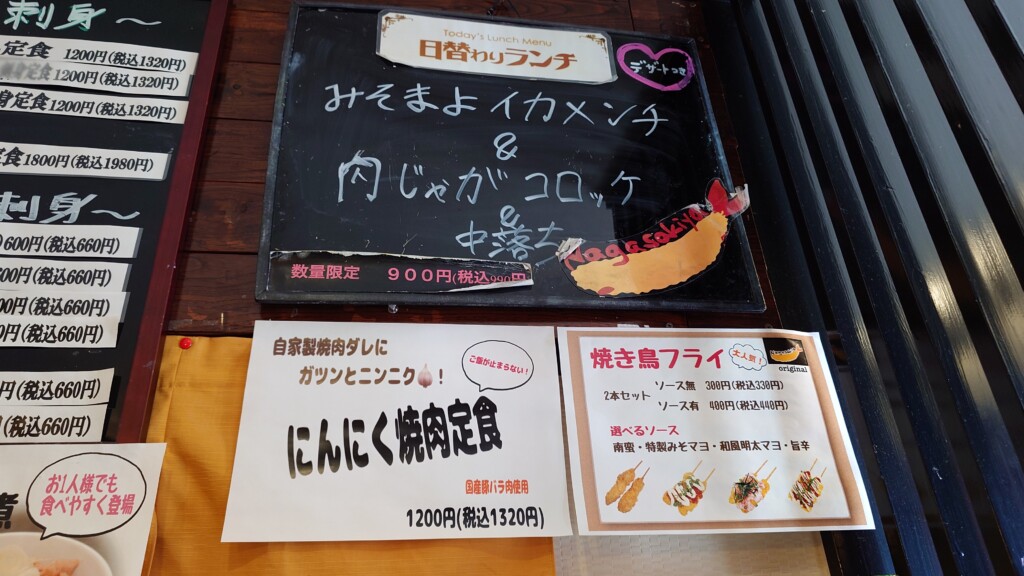 刺身～
定食 1200円(税込1320円)
定食 1200円(税込1320円)
身定食 1200円(税込1320円)
定食 1800円(税込1980円)
刺身～
600円(税込660円)
00円(税込660円)
00円(税込660円)
円(税込660円)
円(税込660円)
(税込660円)
お1人様でも
食べやすく登場
Today's Lunch Menu
日替わりランチ
デザートつき
みそまよイカメンチ
&
肉じゃがコロッケ
&
中落ち
Nagasakiya
数量限定 900円(税込990円)
自家製焼肉ダレに
ガツンとニンニク！
ご飯が止まらない！
にんにく焼肉定食
国産豚バラ肉使用
1200円(税込1320円)
焼き鳥フライ
大人気！
original
2本セット
ソース無 300円(税込330円)
ソース有 400円(税込440円)
選べるソース
南蛮・特製みそマヨ・和風明太マヨ・旨辛